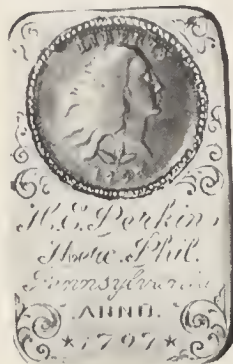 LIBERTY
H. E. Perkins
Phil.
Pennsylvania
ANNO.
*1797*